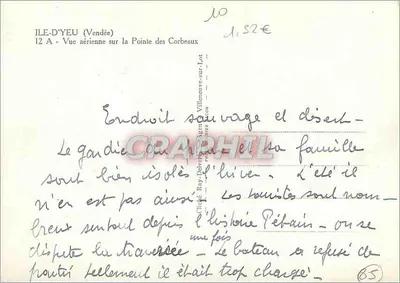 10
1,52€
ILE-D'YEU (Vendée)
12 A - Vue aérienne sur la Pointe des Corbeaux
Endroit sauvage et désert -
Le gardien du et sa famille
sont bien isolés l'hiver - L'été il
n'en est pas ainsi. Les touristes sont nom-
breux surtout depuis l'histoire Pétain - on se
dispute la traversée - une fois Le bateau a refusé de
partir tellement il était trop chargé -
65
CPARAPHIL
Villeneuve-sur-Lot